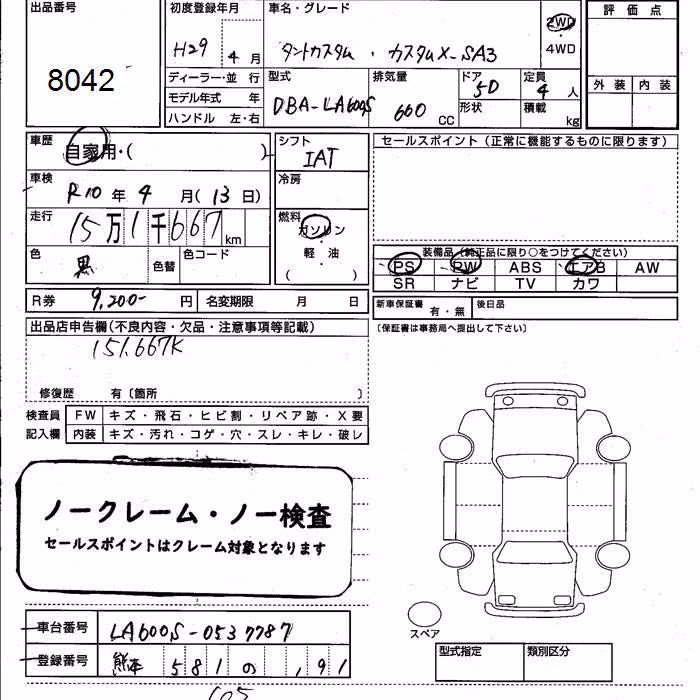 出品番号
8042
初度登録年月
H29 4月
車名・グレード
タントカスタム . カスタムX-SA3
2WD
4WD
評価点
外装 内装
ディーラー・並行
モデル年式 年
ハンドル 左・右
型式
DBA-LA600S
排気量
660 CC
ドア
5D
形状
定員
4人
積載
kg
車歴
自家用・( )
車検
R10年4月(13日)
走行
15万1千667km
色
黒
色替
色コード
シフト
IAT
冷房
燃料
ガソリン
・
軽油
( )
セールスポイント(正常に機能するものに限ります)
装備品(純正品に限り○をつけてください)
PS PW ABS エアB AW
SR ナビ TV カワ
R券 9,200- 円 名変期限 月 日
新車保証書 有・無 後日品
(保証書は事務局へ提出して下さい)
出品店申告欄(不良内容・欠品・注意事項等記載)
151.667K
修復歴 有〔箇所 〕
検査員 FW キズ・飛石・ヒビ割・リペア跡・X要
記入欄 内装 キズ・汚れ・コゲ・穴・スレ・キレ・破レ
ノークレーム・ノー検査
セールスポイントはクレーム対象となります
車台番号 LA600S-0537787
登録番号 熊本 581 の ,91
スペア
型式指定 類別区分